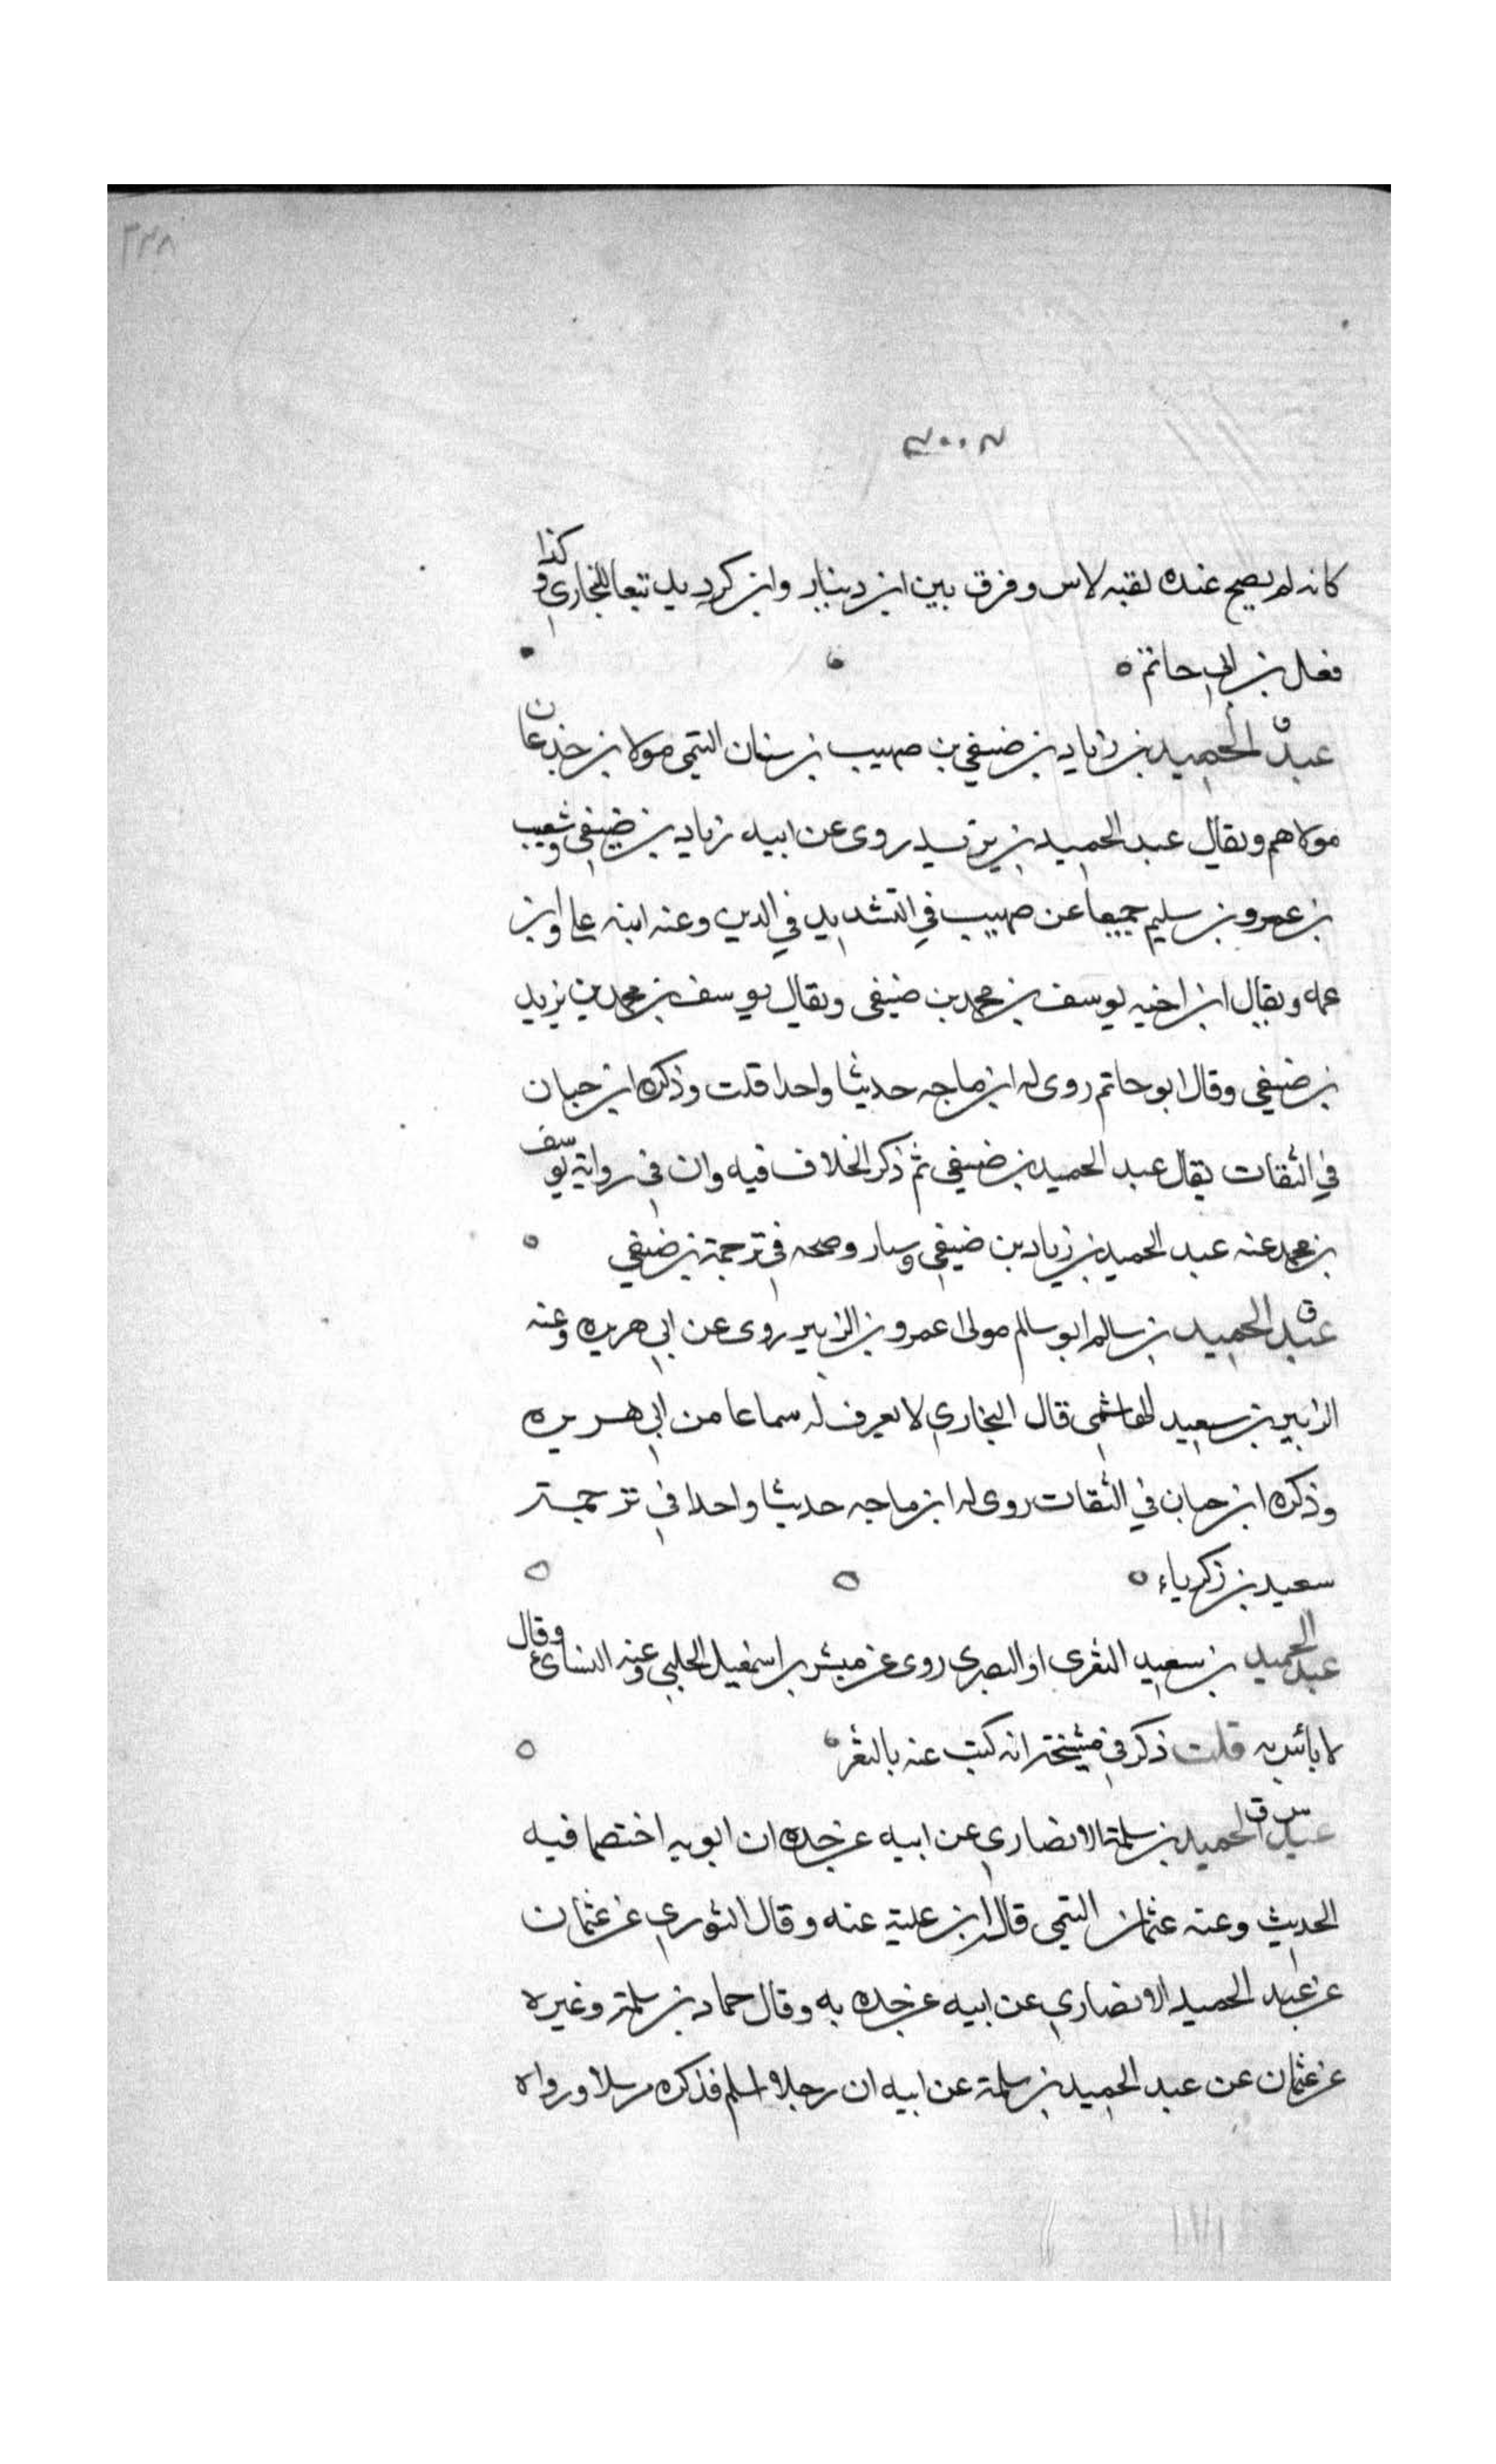 ٣٢٨
كانه لم يصح عنده لقبه لاس وفرق بين ابن دينار وابن كرديد تبعا للبخاري وكذا
فعل بن ابي حاتم ه
ق
عبد الحميد بن زياد بن ضيفي بن صهيب بن سنان التيمي مولا بن جدعان
مولاهم ويقال عبد الحميد بن يزيد روى عن ابيه زياد بن ضيفي وشعيب
بن عمرو بن سليم جميعا عن صهيب في التشديد في الدين وعنه ابنه علي وابن
عمه ويقال ابن اخيه يوسف بن محمد بن ضيفي ويقال يوسف بن محمد بن يزيد
بن ضيفي وقال ابو حاتم روى له ابن ماجه حديثا واحدا قلت وذكره ابن حبان
في الثقات يقال عبد الحميد بن ضيفي ثم ذكر الخلاف فيه وان في رواية يوسف
بن محمد عنه عبد الحميد بن زياد بن ضيفي وصححه في ترجمة بن ضيفي
ق
عبد الحميد بن سالم ابو سالم مولى عمرو بن الزبير روى عن ابي هريره وعنه
الزبير بن سعيد الهاشمي قال البخاري لا يعرف له سماعا من ابي هريره
وذكره ابن حبان في الثقات روى له ابن ماجه حديثا واحدا في ترجمة
سعيد بن زكرياء ه
عبد الحميد بن سعيد الثغرى او البصرى روى عن مبشر بن اسمعيل الحلبي وعنه النسائي وقال
لا بائس به قلت ذكر في مشيخته انه كتب عنه بالثغر
س ق
عبد الحميد بن سلمة الانصاري عن ابيه عن جده ان ابويه اختصما فيه
الحديث وعنه عثمان التيمي قاله ابن علية عنه وقال الثوري عن عثمان
عن عبد الحميد الانصاري عن ابيه عن جده به وقال حماد بن سلمة وغيره
عن عثمان عن عبد الحميد بن سلمة عن ابيه ان رجلا اسلم فذكره مرسلا ورواه